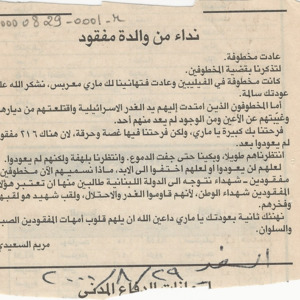 0000829-0001-م
نداء من والدة مفقود
عادت مخطوفة.
لتذكرنا بقضية المخطوفين.
كانت مخطوفة في الفيليبين وعادت فتهانينا لك ماري معربس، نشكر الله على
عودتك سالمة.
أما المخطوفون الذين امتدت إليهم يد الغدر الاسرائيلية واقتلعتهم من ديارهم
وغيبتهم عن الأعين ومن الوجود لم يعد منهم احد.
فرحتنا بك كبيرة يا ماري، ولكن فرحتنا فيها غصة وحرقة، لان هناك ٢١٦ مفقودا
لم يعودوا بعد.
انتظرناهم طويلا، وبكينا حتى جفت الدموع. وانتظرنا بلهفة ولكنهم لم يعودوا.
لعلهم لن يعودوا أو لعلهم اختفوا الى الابد، ماذا نسميهم الآن مخطوفين -
مفقودين - شهداء نتوجه الى الدولة اللبنانية طالبين منها ان تعتبر هؤلاء
المفقودين شهداء الوطن، لأنهم قاوموا الغدر والاحتلال، ولقب شهيد هو لقبهم
وفخرهم.
نهنئك ثانية بعودتك يا ماري داعين الله ان يلهم قلوب أمهات المفقودين الصبر
والسلوان.
مريم السعيدي
السفير ٢٠٠٠/٨/٢٩
الدفاع المدني